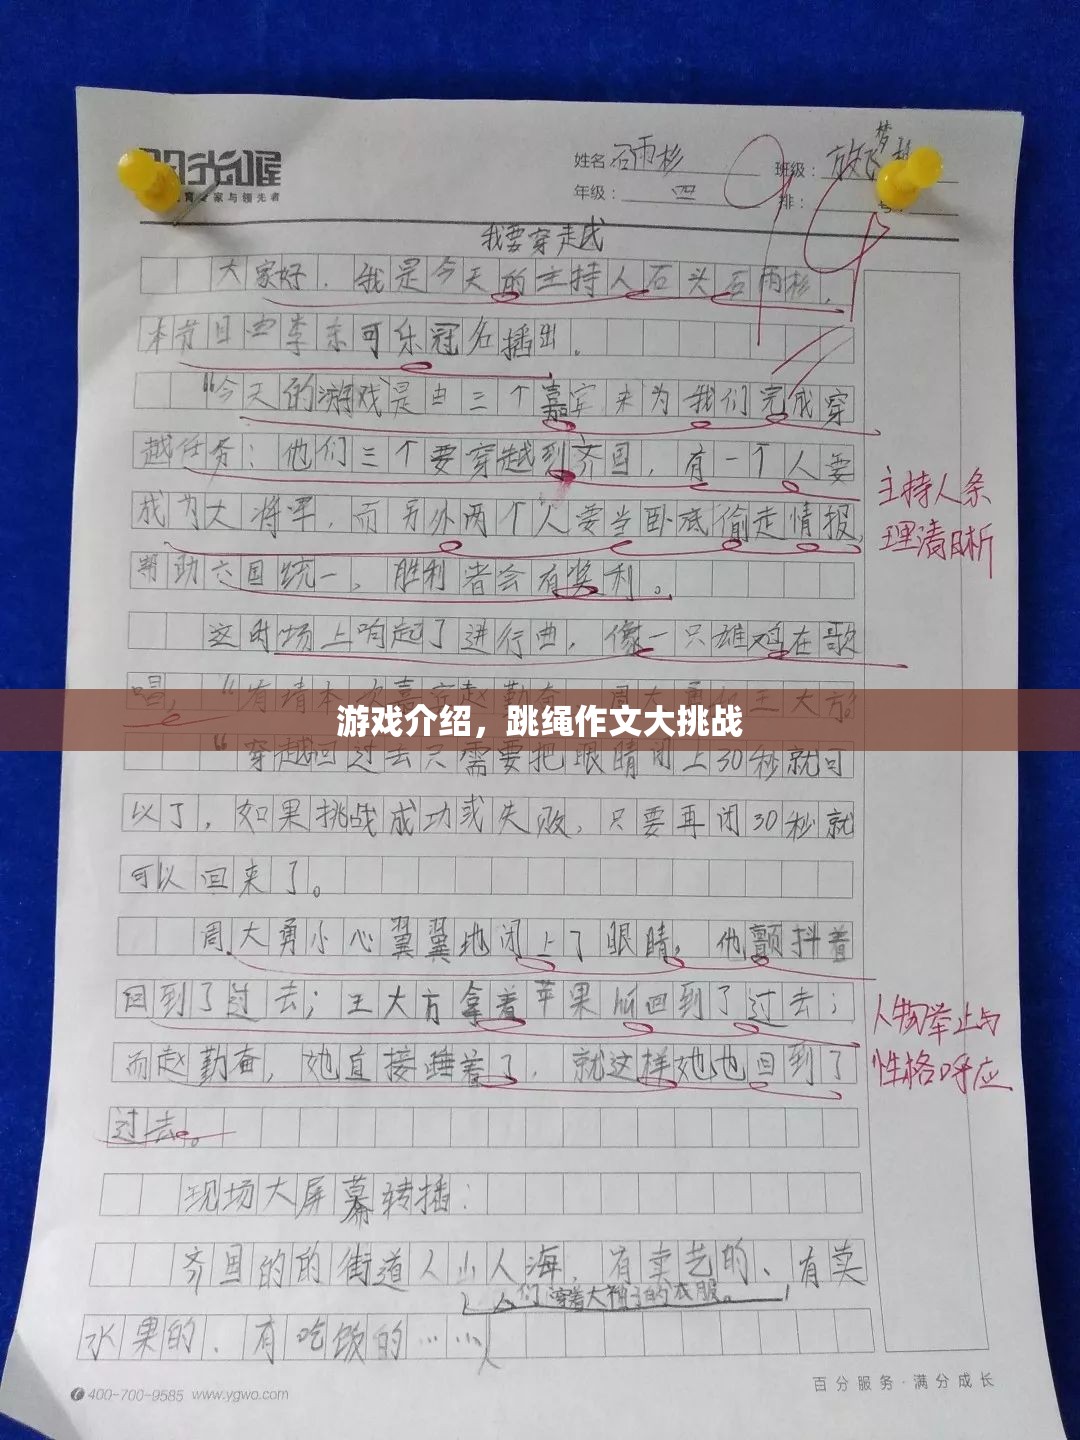 阳光喔
教育专家与领先者
姓名 石雨杉 班级: 放飞梦想
年级: 四 排: 号:
99
我要穿走戉
大家好，我是今天的主持人石头石雨杉，
本节目由李东可乐冠名播出。
“今天的游戏是由三个嘉宾来为我们完成穿
越任务：他们三个要穿越到齐国，有一个人要
成为大将军，而另外两个人要当卧底偷走情报，
帮助六国统一，胜利者会有奖利。
主持人条
理清晰
这时场上响起了进行曲，像一只雄鸡在歌
唱，“有请本次嘉宾赵勤奋、周大勇和王大方。
游戏介绍，跳绳作文大挑战
“穿越回过去只需要把眼睛闭上30秒就可
以了，如果挑战成功或失败，只要再闭30秒就
可以回来了。
周大勇小心翼翼地闭上了眼睛，他颤抖着
回到了过去；王大方拿着苹果回到了过去；
而赵勤奋，她直接睡着了，就这样她也回到了
过去。
人物举止与
性格呼应
现场大屏幕转播：
齐国的的街道人山人海，有卖艺的、有卖
人们穿着大袖子的衣服。
水果的、有吃饭的……
400-700-9585 www.ygwo.com
百分服务·满分成长